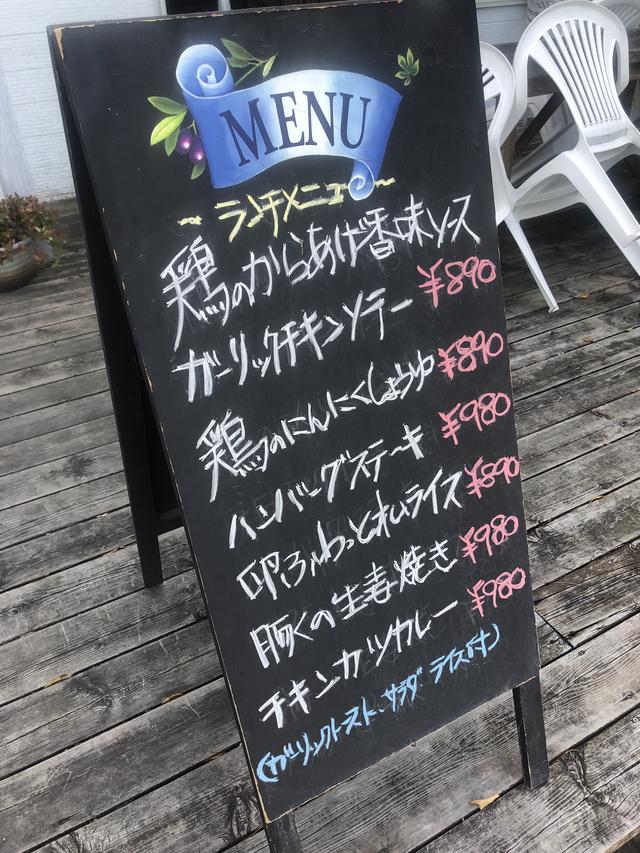 MENU
~ランチメニュー~
鶏のからあげ香味ソース
¥890
ガーリックチキンソテー
¥890
鶏のにんにくしょうゆ
¥980
ハンバーグステーキ
¥890
卵ふわっとオムライス
¥980
豚くの生姜焼き
¥980
チキンカツカレー
(ガーリックトースト、サラダ ライス付)